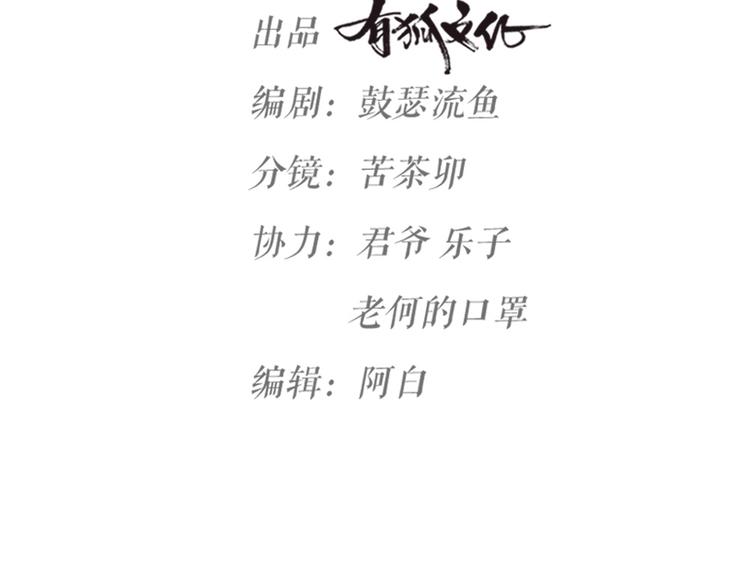 出品 有狐文化
编剧：鼓瑟流鱼
分镜：苦茶卯
协力：君爷 乐子
老何的口罩
编辑：阿白